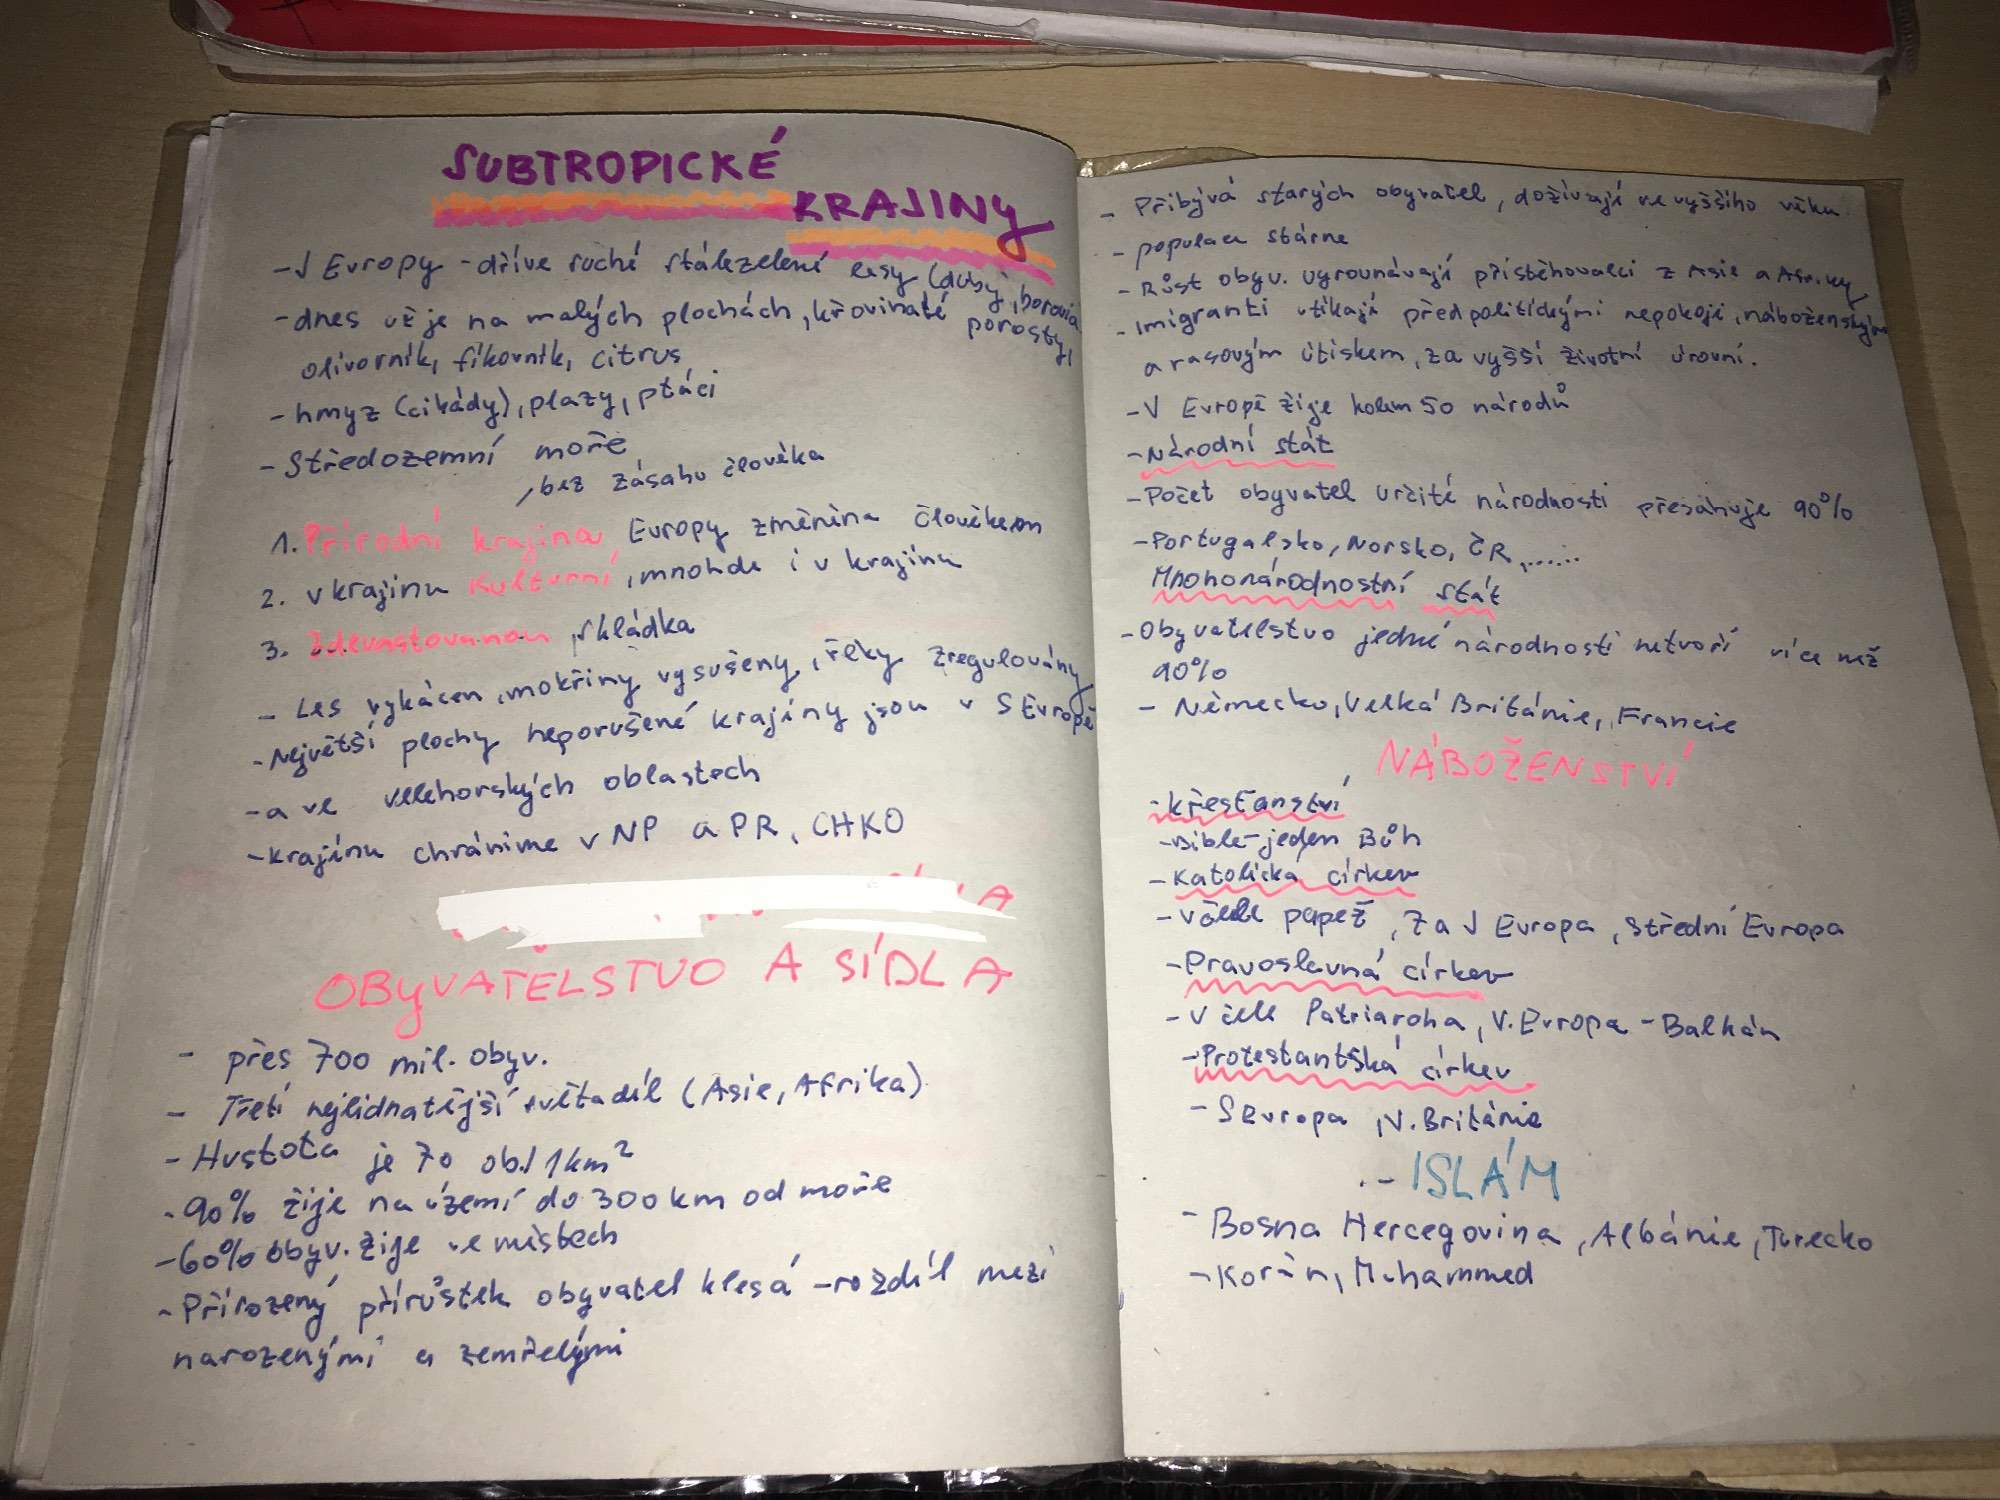 SUBTROPICKÉ
KRAJINY
- J Evropy - dříve suché stálezelené lesy (duby, borovice
- dnes už je na malých plochách, křovinaté porosty,
olivovník, fíkovník, citrus
- hmyz (cikády), plazy, ptáci
- Středozemní moře
, bez zásahu člověka
1. Přírodní krajina Evropy změněna člověkem
2. v krajinu kulturní, mnohde i v krajinu
3. Zdevastovanou, skládka
- Les vykácen, mokřiny vysušeny, řeky zregulovány
- Největší plochy neporušené krajiny jsou v S Evropě
- a ve velehorských oblastech
- krajinu chráníme v NP a PR, CHKO
OBYVATELSTVO A SÍDLA
- přes 700 mil. obyv.
- Třetí nejlidnatější světadíl (Asie, Afrika)
- Hustota je 70 ob./1km²
- 90% žije na území do 300 km od moře
- 60% obyv. žije ve městech
- Přirozený přírůstek obyvatel klesá - rozdíl mezi
narozenými a zemřelými
- Přibývá starých obyvatel, dožívají se vyššího věku
- populace stárne
- Růst obyv. vyrovnávají přistěhovalci z Asie a Afriky
- Imigranti utíkají před politickými nepokoji, náboženským
a rasovým útiskem, za vyšší životní úrovní.
- V Evropě žije kolem 50 národů
- Národní stát
- Počet obyvatel určité národnosti přesahuje 90%
- Portugalsko, Norsko, ČR, ......
Mnohonárodnostní stát
- Obyvatelstvo jedné národnosti netvoří více než
90%
- Německo, Velká Británie, Francie
NÁBOŽENSTVÍ
- křesťanství
- Bible - jeden Bůh
- Katolická církev
- v čele papež, Z a J Evropa, Střední Evropa
- Pravoslavná církev
- v čele Patriarcha, V. Evropa - Balkán
- Protestantská církev
- S Evropa, V. Británie
- ISLÁM
- Bosna Hercegovina, Albánie, Turecko
- Korán, Muhammed